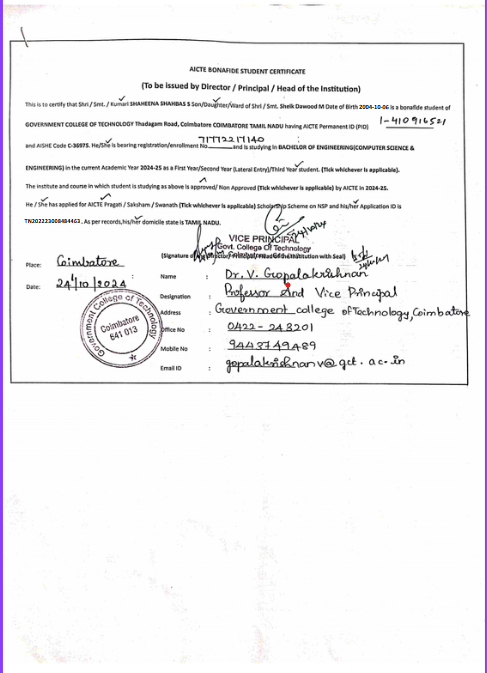 AICTE BONAFIDE STUDENT CERTIFICATE
(To be issued by Director / Principal / Head of the Institution)
This is to certify that Shri / Smt. / Kumari SHAHEENA SHAHBAS S Son/Daughter/Ward of Shri / Smt. Sheik Dawood M Date of Birth 2004-10-06 is a bonafide student of
GOVERNMENT COLLEGE OF TECHNOLOGY Thadagam Road, Coimbatore COIMBATORE TAMIL NADU having AICTE Permanent ID (PID) 1-410916521
and AISHE Code C-36975. He/She is bearing registration/enrollment No. 71772217140 and is studying in BACHELOR OF ENGINEERING(COMPUTER SCIENCE &
ENGINEERING) in the current Academic Year 2024-25 as a First Year/Second Year (Lateral Entry)/Third Year student. (Tick whichever is applicable).
The institute and course in which student is studying as above is approved/ Non Approved (Tick whichever is applicable) by AICTE in 2024-25.
He / She has applied for AICTE Pragati / Saksham / Swanath (Tick whichever is applicable) Scholarship Scheme on NSP and his/her Application ID is
TN202223008484463. As per records,his/her domicile state is TAMIL NADU.
VICE PRINCIPAL
Govt. College Of Technology
(Signature of Director/Principal/Head of the Institution with Seal)
Place: Coimbatore
Date: 24/10/2024
Name : Dr. V. Gopalakrishnan
Designation : Professor and Vice Principal
Address : Government college of Technology, Coimbatore
Office No : 0422-243201
Mobile No : 9443749489
Email ID : gopalakrishnanv@gct.ac.in
Government College of Technology
Coimbatore
641 013